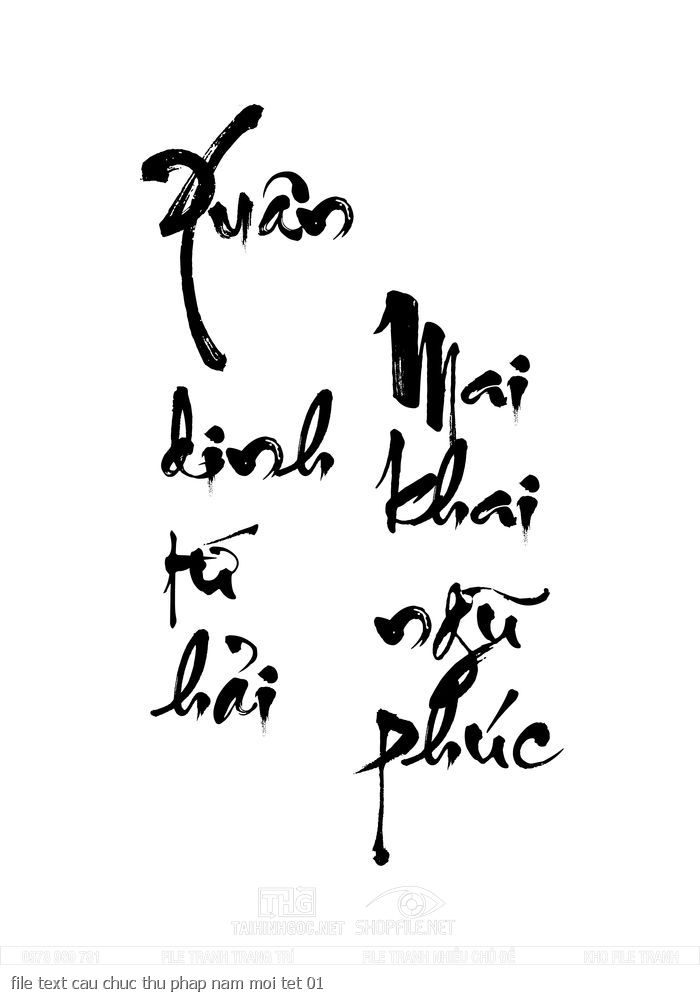 Xuân
dinh
tứ
hải
Mai
khai
ngũ
phúc
THG
TAIHINHGOC.NET
SHOPFILE.NET
FILE TRANH TRANG TRÍ
FILE TRANH NHIỀU CHỦ ĐỀ
KHO FILE TRANH
file text cau chuc thu phap nam moi tet 01